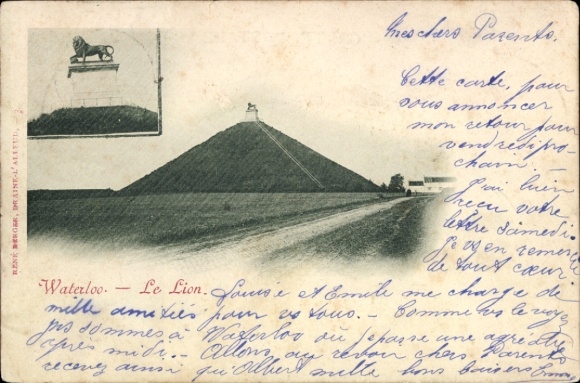 Mes chers Parents.
Cette carte, pour
vous annoncer
mon retour pour
vendredi pro-
chain —
J'ai bien
reçu votre
lettre Samedi.
Je vs en remerc
de tout cœur.
RENÉ BERGER, BRAINE-L'ALLEUD.
Waterloo. — Le Lion.
Louise et Emile me charge de
mille amitiés pour vs tous. — Comme vs le voyez
ns sommes à Waterloo où je passe une agréable
après midi. — Allons, au revoir chers Parents
recevez ainsi qu'Albert mille bons baisers